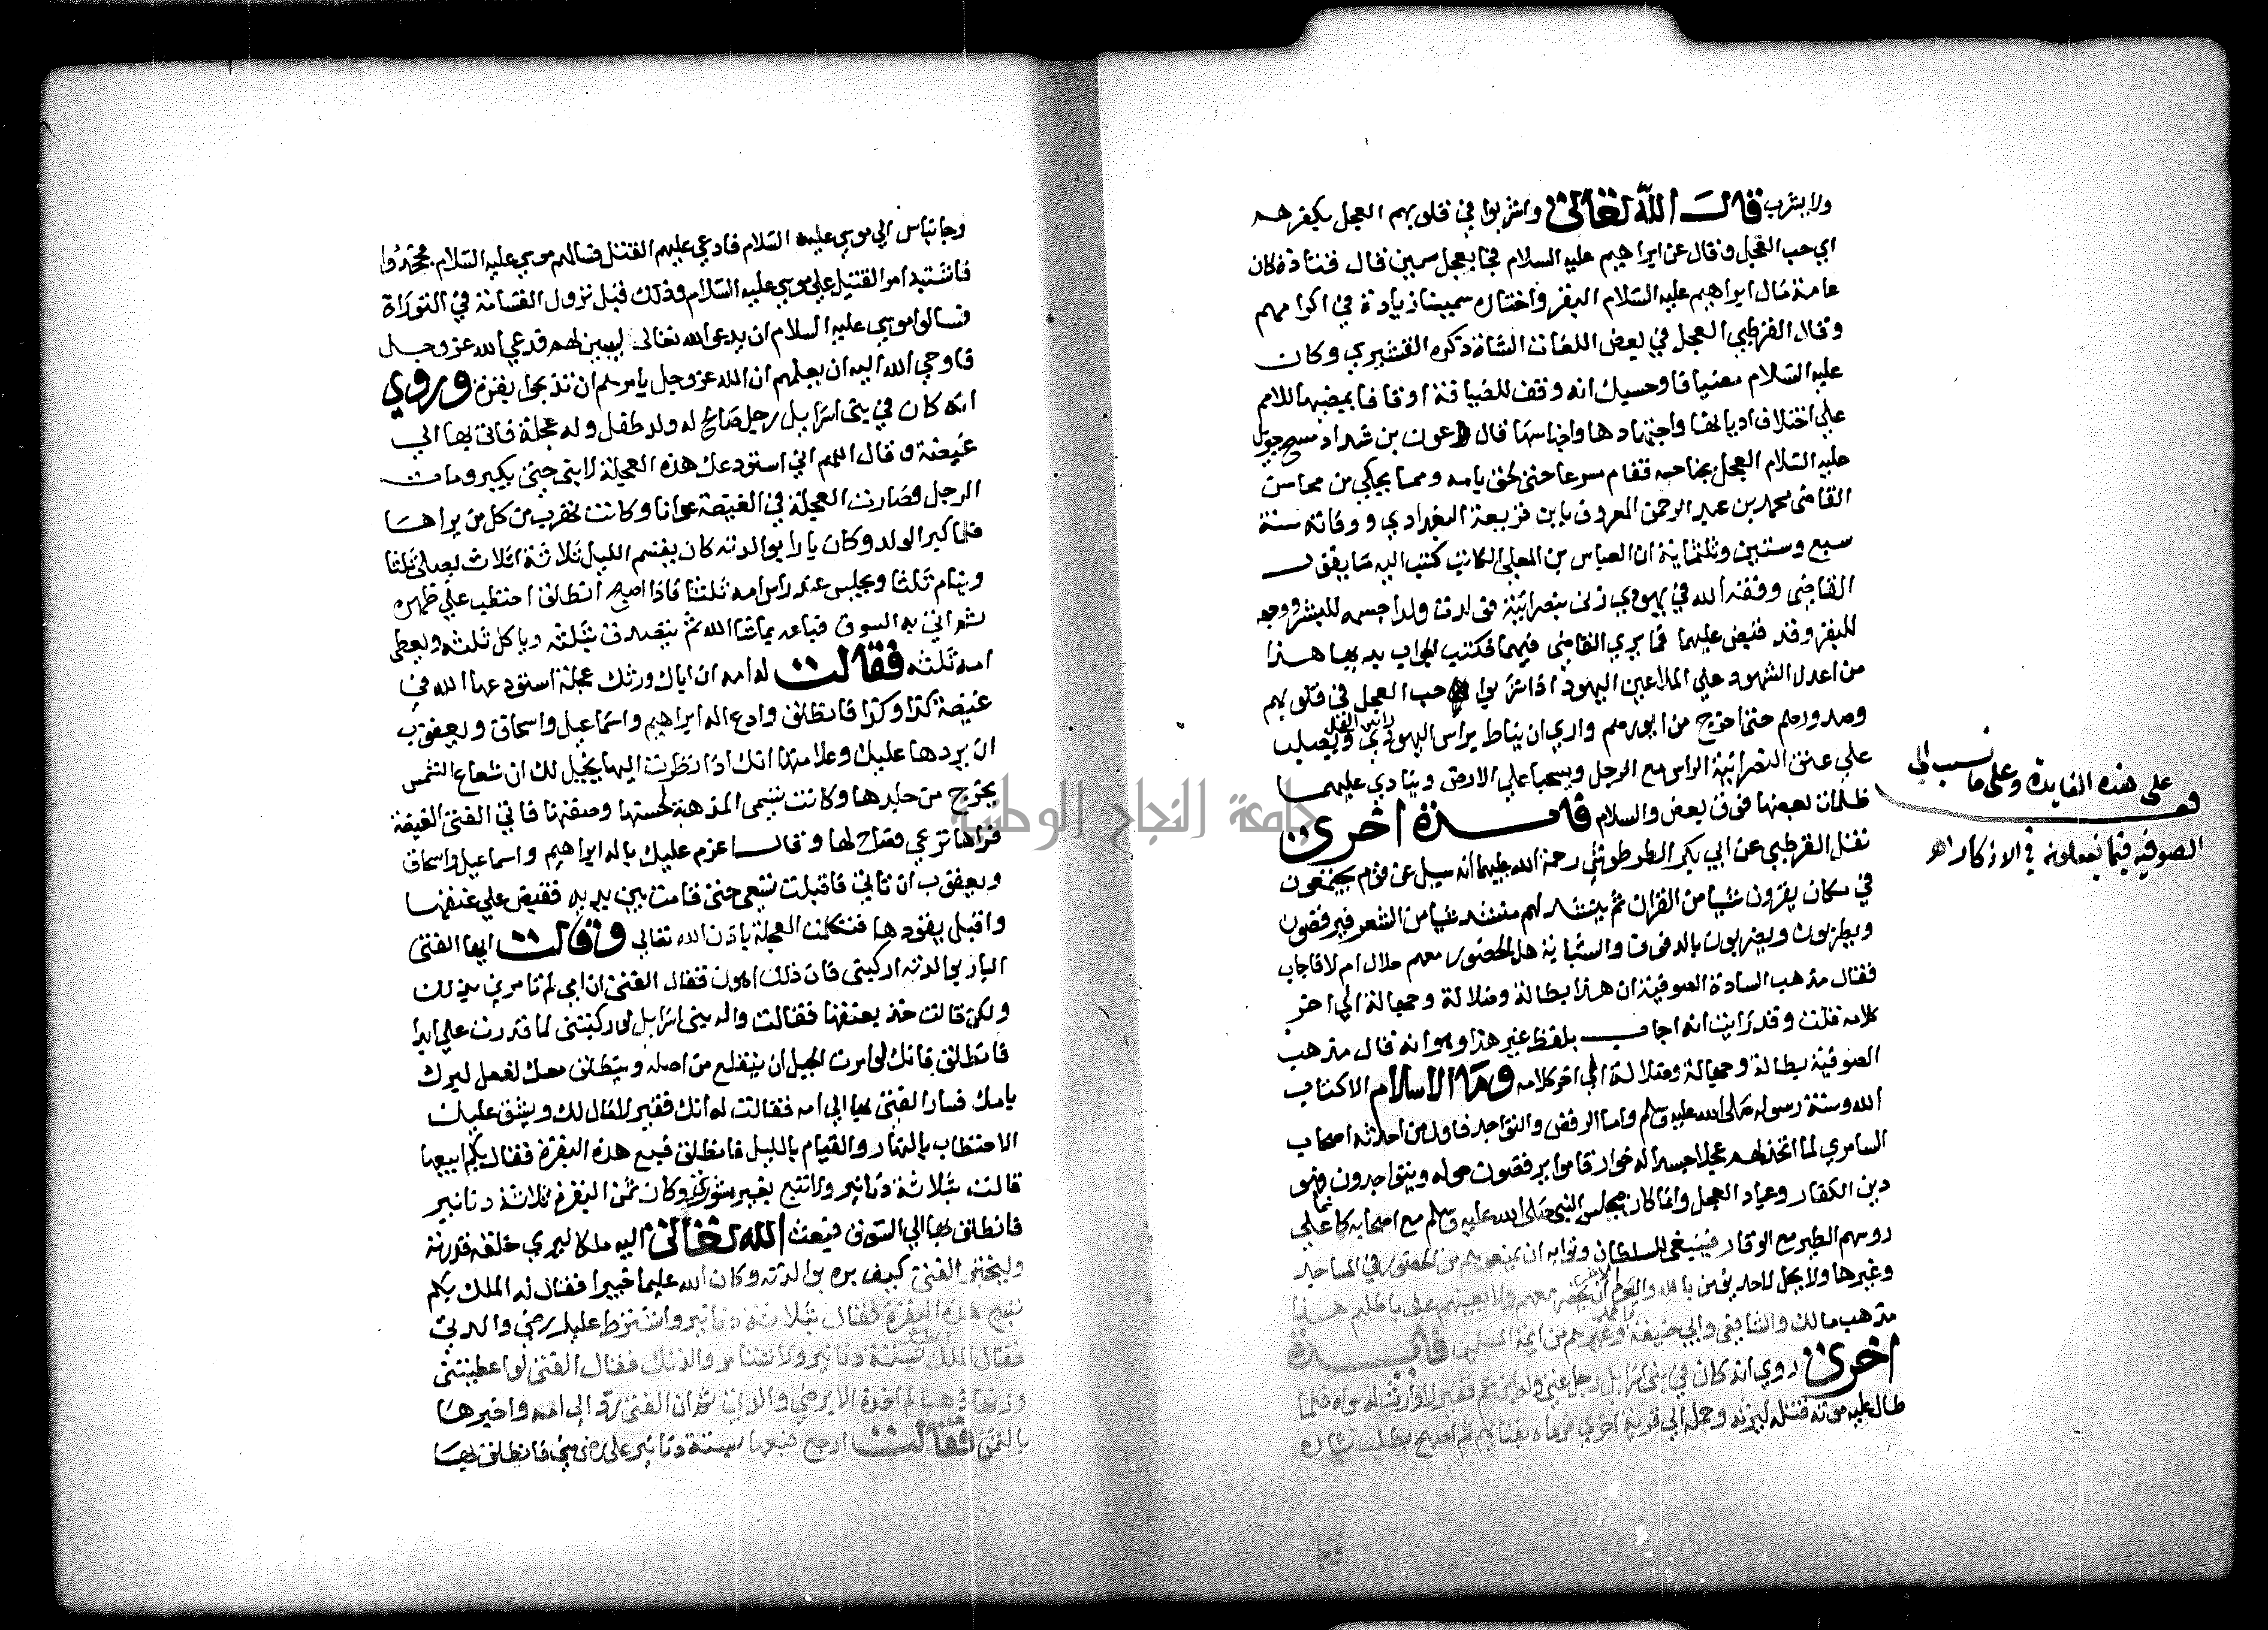 ولا يشرب قال الله تعالى واشربوا في قلوبهم العجل بكفرهم
اي حب العجل وقال عن ابراهيم عليه السلام فجا بعجل سمين قال قتادة كان
عامة مال ابراهيم عليه السلام البقر واختاره سمينا زيادة في اكرامهم
وقال القرطبي العجل في بعض اللغات الشاة ذكره القشيري وكان
عليه السلام مضيافا وحسبك انه وقف للضيافة اوقافا يمضيها للامم
علي اختلاف اديانها واجنادها واجناسها قال عون بن شداد مسح جبريل
عليه السلام العجل بجناحه فقام مسرعا حتى لحق بامه ومما يحكي من محاسن
القاضي محمد بن عبد الرحمن المعروف بابن قريعة البغدادي ووفاته سنة
سبع وستين وثلثماية ان العباس بن المعلي الكاتب كتب اليه ما يقول
القاضي وفقه الله في يهودي زنى بنصرانية فولدت ولدا جسمه للبشر ووجهه
للبقر وقد قبض عليهما فما يري القاضي فيهما فكتب الجواب بديها هذا
من اعدل الشهود علي الملاعين اليهود اذ اشربوا حب العجل في قلوبهم
وصدورهم حتى خرج من ايورهم واري ان يناط براس اليهودي راس العجل ويصلب
علي عنق النصرانية الراس مع الرجل ويسحبا علي الارض وينادي عليهما
ظلمات بعضها فوق بعض والسلام فايدة اخرى
نقل القرطبي عن ابي بكر الطرطوشي رحمة الله عليهما انه سيل عن قوم يجتمعون
في مكان يقرون شيا من القران ثم ينشد لهم منشد شيا من الشعر فيرقصون
ويطربون ويضربون بالدفوف والشبابة هل الحضور معهم حلال ام لا فاجاب
فقال مذهب السادة الصوفية ان هذا بطالة وضلالة وجهالة الي اخر
كلامه قلت وقد رايت انه اجاب بلفظ غير هذا وهو انه قال مذهب
الصوفية بطالة وجهالة وضلالة الي اخر كلامه وما الاسلام الا كتاب
الله وسنة رسوله صلى الله عليه وسلم واما الرقص والتواجد فاول من احدثه اصحاب
السامري لما اتخذ لهم عجلا جسدا له خوار قاموا يرقصون حوله ويتواجدون فهو
دين الكفار وعباد العجل وانما كان مجلس النبي صلى الله عليه وسلم مع اصحابه كانما علي
روسهم الطير مع الوقار فينبغي للسلطان ونوابه ان يمنعوهم من الحضور في المساجد
وغيرها ولا يحل لاحد يؤمن بالله واليوم الاخر ان يحضر معهم ولا يعينهم علي باطلهم هذا
مذهب مالك والشافعي وابي حنيفة واحمد وغيرهم من ايمة المسلمين فايدة
اخرى روي انه كان في بني اسرايل رجل غني وله ابن عم فقير لا وارث له سواه فلما
طال عليه موته قتله ليرثه وحمله الي قرية اخري فرماه بفنايهم ثم اصبح يطلب بثاره
وجا
قف
على هذه الفايدة وعلى ما نسب الى
الصوفيه فيما يفعلونه في الاذكار اهـ
وجا بناس الي موسي عليه السلام فادعي عليهم القتل فسالهم موسي عليه السلام فجحدوا
فاشتبه امر القتيل علي موسي عليه السلام وذلك قبل نزول القسامة في التوراة
فسالوا موسي عليه السلام ان يدعو الله تعالى ليبين لهم فدعي الله عز وجل
فاوحي الله اليه ان يعلمهم ان الله عز وجل يامركم ان تذبحوا بقرة وروي
انه كان في بني اسرايل رجل صالح له ولد طفل وله عجلة فاتى بها الي
غيضة وقال اللهم اني استودعتك هذه العجلة لابني حتى يكبر ومات
الرجل فصارت العجلة في الغيضة عوانا وكانت تهرب من كل من يراها
فلما كبر الولد وكان بارا بوالدته كان يقسم الليل ثلاثة اثلاث يصلي ثلثا
وينام ثلثا ويجلس عند راس امه ثلثا فاذا اصبح انطلق احتطب علي ظهره
ثم اتي به السوق فباعه بما شا الله ثم يتصدق بثلثه وياكل ثلثه ويعطي
امه ثلثه فقالت له امه ان اباك ورثك عجلة استودعها الله في
غيضة كذا وكذا فانطلق وادع اله ابراهيم واسماعيل واسحاق ويعقوب
ان يردها عليك وعلامتها انك اذا نظرت اليها يخيل لك ان شعاع الشمس
يخرج من جلدها وكانت تسمى المذهبة لحسنها وصفتها فاتي الفتى الغيضة
فراها ترعي فصاح لها وقال اعزم عليك باله ابراهيم واسماعيل واسحاق
ويعقوب ان تاتي فاقبلت تسعي حتى قامت بين يديه فقبض علي عنقها
واقبل يقودها فتكلمت العجلة باذن الله تعالي وقالت ايها الفتى
البار بوالدته اركبني فان ذلك اهون فقال الفتى ان امي لم تامرني بذلك
ولكن قالت خذ بعنقها فقالت واله بني اسرايل لو ركبتني لما قدرت علي ابدا
فانطلق فانك لو امرت الجبل ان ينقلع من اصله وينطلق معك لفعل لبرك
بامك فسار الفتى بها الي امه فقالت له انك فقير لا مال لك ويشق عليك
الاحتطاب بالنهار والقيام بالليل فانطلق فبع هذه البقرة فقال بكم ابيعها
قالت بثلاثة دنانير ولا تبع بغير مشورتي وكان ثمن البقرة ثلاثة دنانير
فانطلق بها الي السوق فبعث الله تعالى اليه ملكا ليري خلقه قدرته
وليختبر الفتى كيف بره بوالدته وكان الله عليما خبيرا فقال له الملك بكم
تبيع هذه البقرة فقال بثلاثة دنانير واشترط عليك رضي والدتي
فقال الملك اعطيك ستة دنانير ولا تستامر والدتك فقال الفتى لو اعطيتني
وزنها ذهبا لم اخذه الا برضي والدتي ثم ان الفتى رد الي امه واخبرها
بالثمن فقالت ارجع فبعها بستة دنانير علي رضى مني فانطلق بها